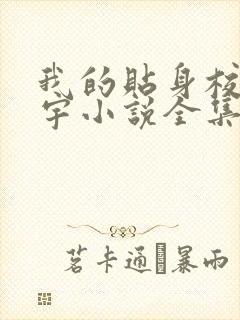 我的贴身校
宇小説全集
茗卡通�暴雨